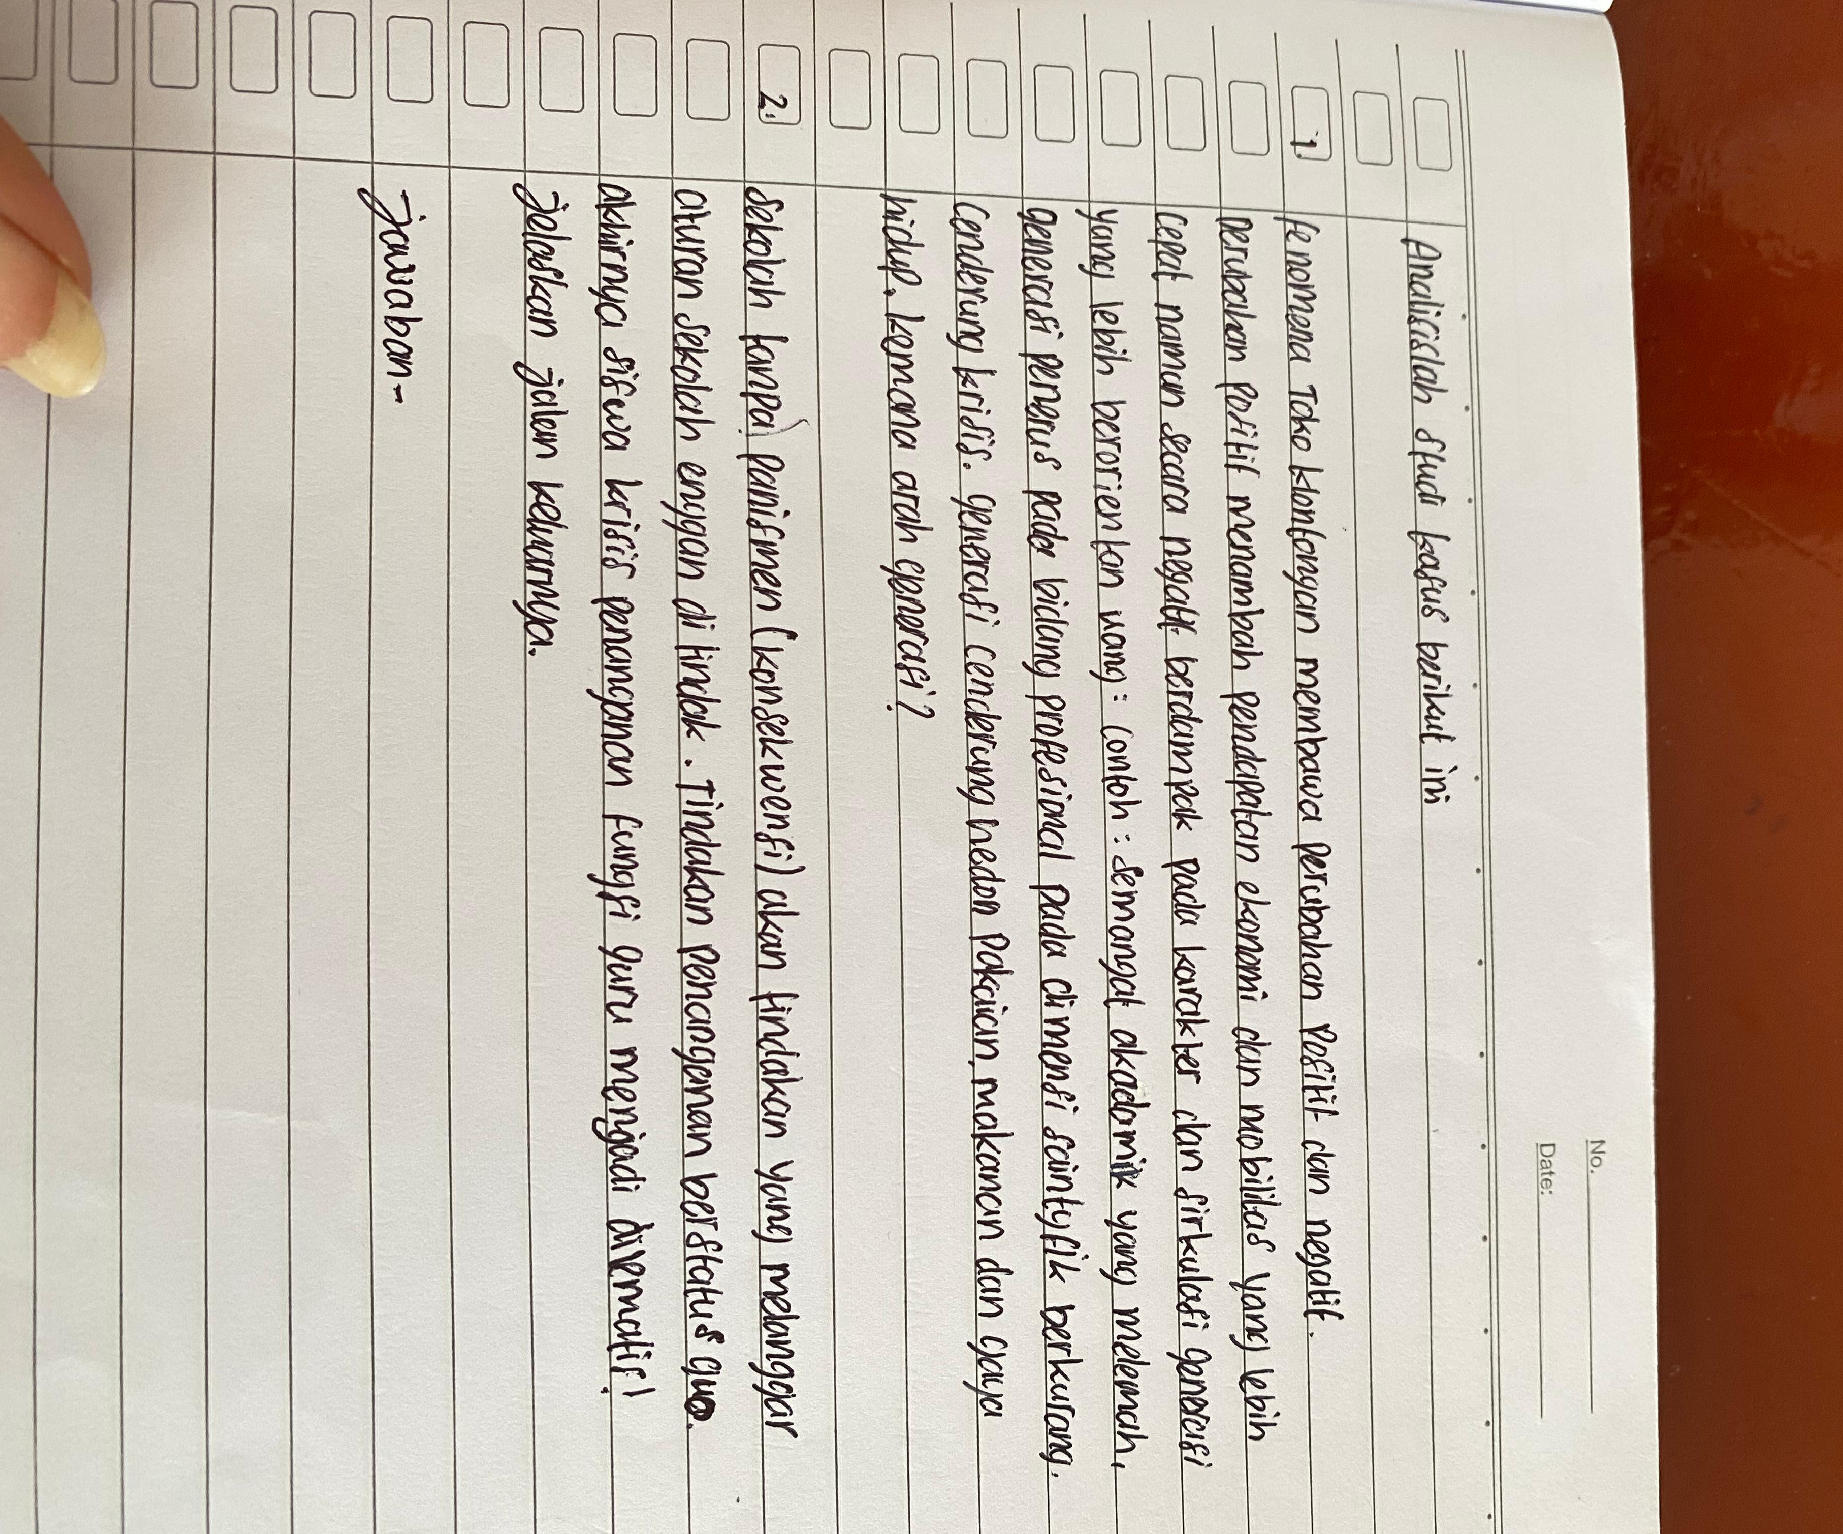 No.
Date:
Analisislah studi kasus berikut ini
1. fenomena Toko klontongan membawa perubahan positif dan negatif.
perubahan positif menambah pendapatan ekonomi dan mobilitas yang lebih
cepat naman secara negatif berdampak pada karakter dan sirkulasi generasi
yang lebih berorientan uang: contoh: semangat akadomik yang melemah,
generasi penerus pada bidang profesional pada dimensi saintyfik berkurang.
cenderung krisis. generasi cenderung hedon pakaian, makanan dan gaya
hidup. kemana arah generasi?
2. Sekolah tanpa panismen (konsekwensi) akan tindakan yang melanggar
aturan sekolah enggan di tindak. Tindakan penanganan berstatus quo.
akhirnya siswa krisis penanganan fungsi guru mengadi dilematis!
Jelaskan jalan keluarnya.
Jawaban-